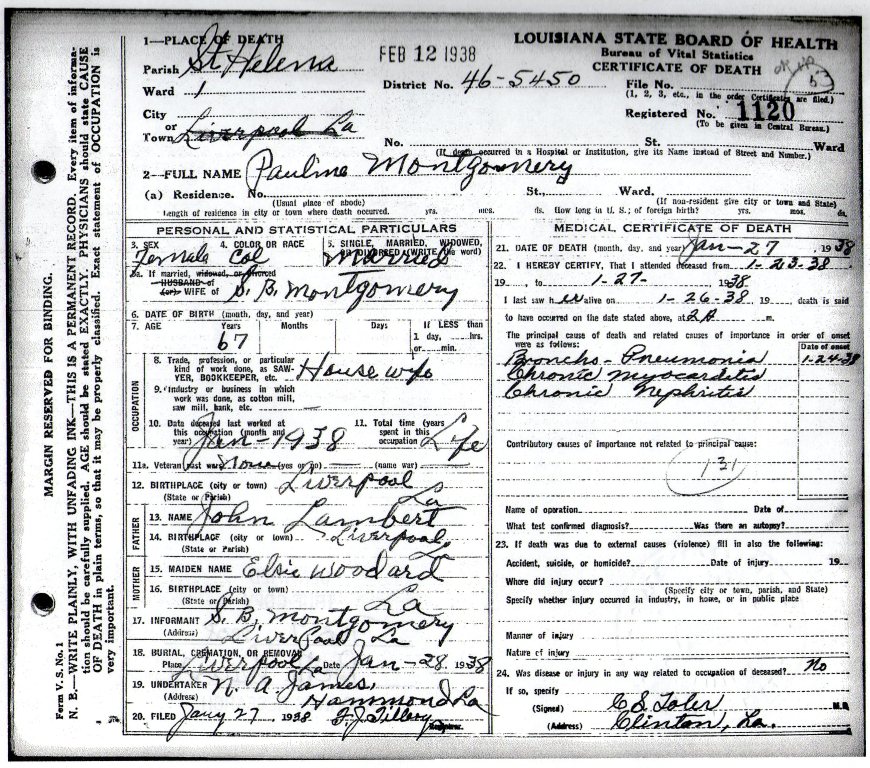 LOUISIANA STATE BOARD OF HEALTH
Bureau of Vital Statistics
CERTIFICATE OF DEATH
FEB 12 1938
1—PLACE OF DEATH
Parish St Helena
District No. 46-5450
File No.
(1, 2, 3, etc., in the order Certificates are filed.)
Ward 1
Registered No. 1120
(To be given in Central Bureau.)
City
or
Town Liverpool La
No. St. Ward
(If death occurred in a Hospital or Institution, give its Name instead of Street and Number.)
2—FULL NAME Pauline Montgomery
(a) Residence. No. St., Ward.
(Usual place of abode) (If non-resident give city or town and State)
Length of residence in city or town where death occurred. yrs. mos. ds. How long in U. S.; of foreign birth? yrs. mos. ds.
PERSONAL AND STATISTICAL PARTICULARS
3. SEX 4. COLOR OR RACE 5. SINGLE, MARRIED, WIDOWED,
OR DIVORCED (WRITE the word)
Female Col Married
5a. If married, widowed, or divorced
HUSBAND of
(or) WIFE of S. B. Montgomery
6. DATE OF BIRTH (month, day, and year)
7. AGE Years Months Days If LESS than
1 day, hrs.
or min.
67
8. Trade, profession, or particular
kind of work done, as SAW-
YER, BOOKKEEPER, etc. House wife
9. Industry or business in which
work was done, as cotton mill,
saw mill, bank, etc. —
10. Date deceased last worked at
this occupation (month and
year) Jan-1938
11. Total time (years
spent in this
occupation Life
11a. Veteran past wars None (yes or no) — (name war) —
12. BIRTHPLACE (city or town) Liverpool
(State or Parish) La
13. NAME John Lambert
14. BIRTHPLACE (city or town) Liverpool
(State or Parish) La
15. MAIDEN NAME Elsie Woodard
16. BIRTHPLACE (city or town)
(State or Parish) La
17. INFORMANT S. B. Montgomery
(Address) Liverpool La
18. BURIAL, CREMATION, OR REMOVAL
Place Liverpool La Date Jan-28, 1938
19. UNDERTAKER N. A. James,
Hammond La
20. FILED Jany 27 1938 F. J. Tillery
Registrar.
OCCUPATION
FATHER
MOTHER
MEDICAL CERTIFICATE OF DEATH
21. DATE OF DEATH (month, day, and year) Jan-27, 1938
22. I HEREBY CERTIFY, That I attended deceased from 1-23-38
19 , to 1-27- 1938
I last saw her alive on 1-26-38, 19 , death is said
to have occurred on the date stated above, at 2A m.
The principal cause of death and related causes of importance in order of onset
were as follows: Date of onset
Broncho-Pneumonia 1-24-38
Chronic Myocarditis
Chronic Nephritis
Contributory causes of importance not related to principal cause:
131
Name of operation Date of
What test confirmed diagnosis? Was there an autopsy?
23. If death was due to external causes (violence) fill in also the following:
Accident, suicide, or homicide? Date of injury 19
Where did injury occur?
(Specify city or town, parish, and State)
Specify whether injury occurred in industry, in home, or in public place
Manner of injury
Nature of injury
24. Was disease or injury in any way related to occupation of deceased? No
If so, specify
(Signed) C S Toler M.D.
(Address) Clinton, La.
MARGIN RESERVED FOR BINDING.
Form V. S. No. 1
N. B.—WRITE PLAINLY, WITH UNFADING INK—THIS IS A PERMANENT RECORD. Every item of informa-
tion should be carefully supplied. AGE should be stated EXACTLY. PHYSICIANS should state CAUSE
OF DEATH in plain terms, so that it may be properly classified. Exact statement of OCCUPATION is
very important.